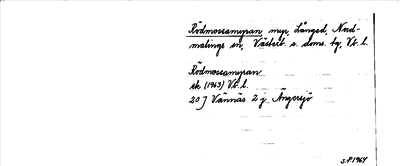 Rödmossamyran, myr, Långed, Nord-
malings sn, Västerb. s. doms. fg, Vb. l.
Rödmossamyran
ek (1963) Vb. l.
20 J Vännäs 2 j Ängersjö
S.P. 1964